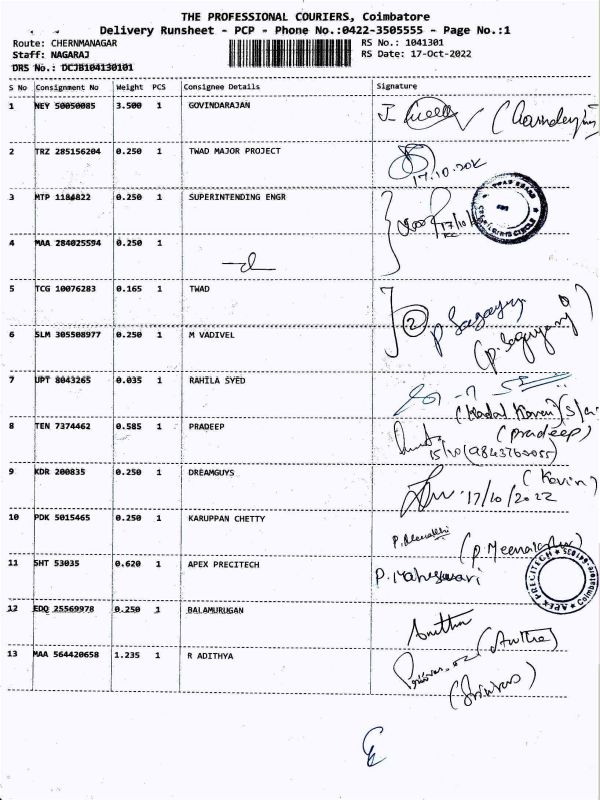 THE PROFESSIONAL COURIERS, Coimbatore
Delivery Runsheet - PCP - Phone No.:0422-3505555 - Page No.:1
Route: CHERNMANAGAR RS No.: 1041301
Staff: NAGARAJ RS Date: 17-Oct-2022
DRS No.: DCJB104130101
S No Consignment No Weight PCS Consignee Details Signature
1 NEY 50050085 3.500 1 GOVINDARAJAN
2 TRZ 285156204 0.250 1 TWAD MAJOR PROJECT
17.10.202
3 MTP 1184822 0.250 1 SUPERINTENDING ENGR
17/10/
4 MAA 284025594 0.250 1
5 TCG 10076283 0.165 1 TWAD
2
6 SLM 305508977 0.250 1 M VADIVEL
7 UPT 8043265 0.035 1 RAHILA SYED
8 TEN 7374462 0.585 1 PRADEEP (pradeep)
15/10 (9843760055)
9 KDR 200835 0.250 1 DREAMGUYS (Kavin)
17/10/2022
10 PDK 5015465 0.250 1 KARUPPAN CHETTY
11 SHT 53035 0.620 1 APEX PRECITECH P. Maheswari
APEX PRECITECH
12 EDQ 25569978 0.250 1 BALAMURUGAN
13 MAA 564420658 1.235 1 R ADITHYA